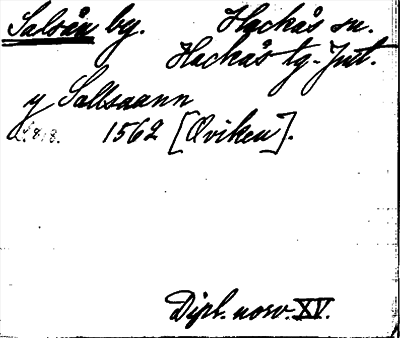 Salsån by. Hackås sn.
Hackås tg. Jmt.
y Sallsaann
1562 [Oviken].
Dipl. norv. XV.